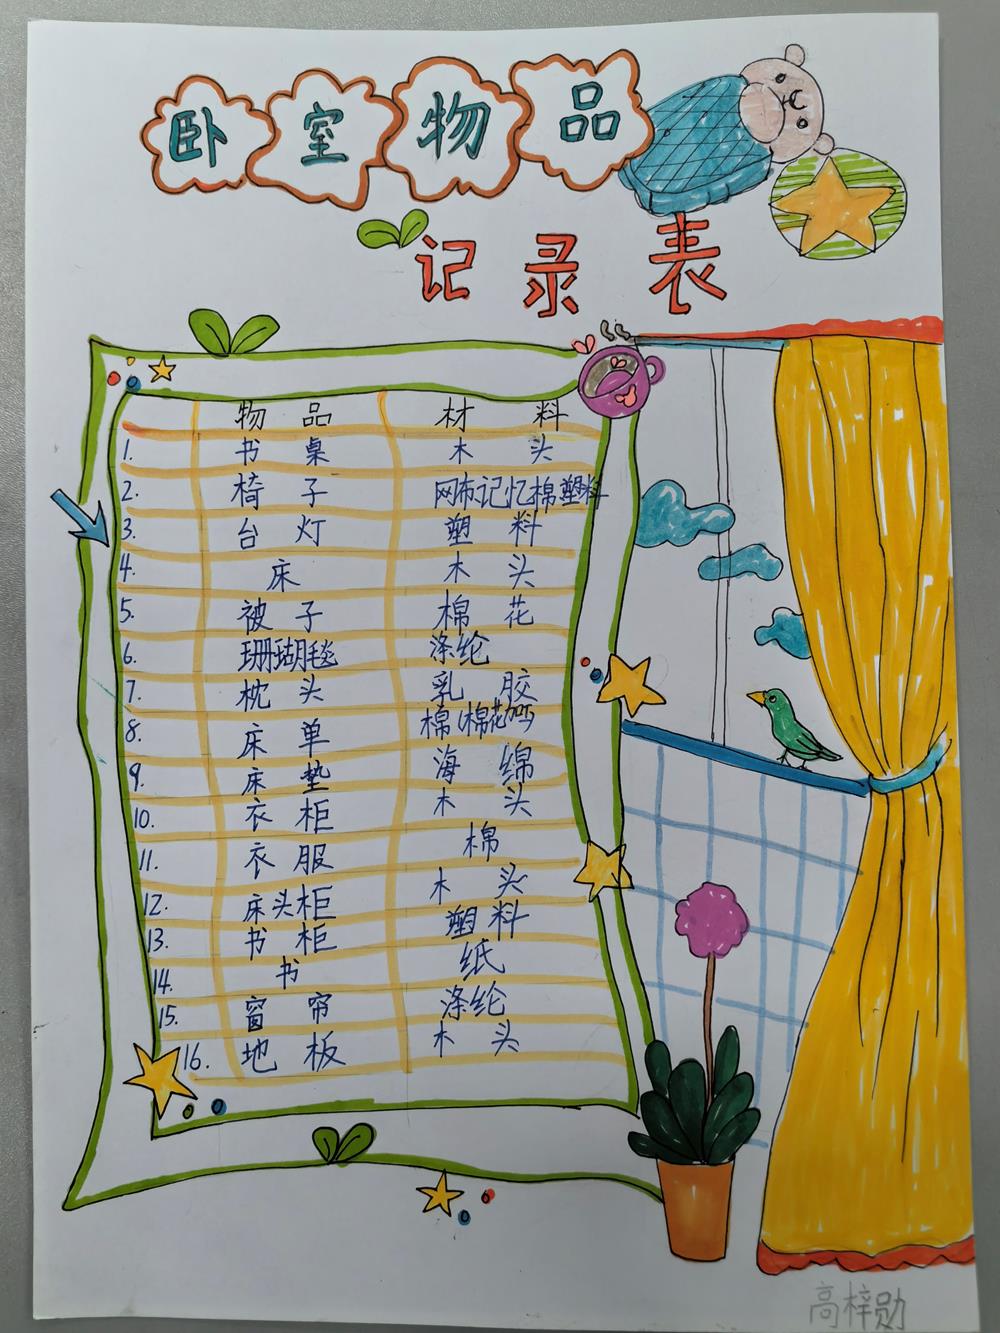 卧室物品
记录表
物品 材料
1. 书桌 木头
2. 椅子 网布记忆棉塑料
3. 台灯 塑料
4. 床 木头
5. 被子 棉花
6. 珊瑚毯 涤纶
7. 枕头 乳胶
8. 床单 棉(棉花
9. 床垫 海绵
10. 衣柜 木头
11. 衣服 棉
12. 床头柜 木头
13. 书柜 塑料
14. 书 纸
15. 窗帘 涤纶
16. 地板 木头
高梓勋